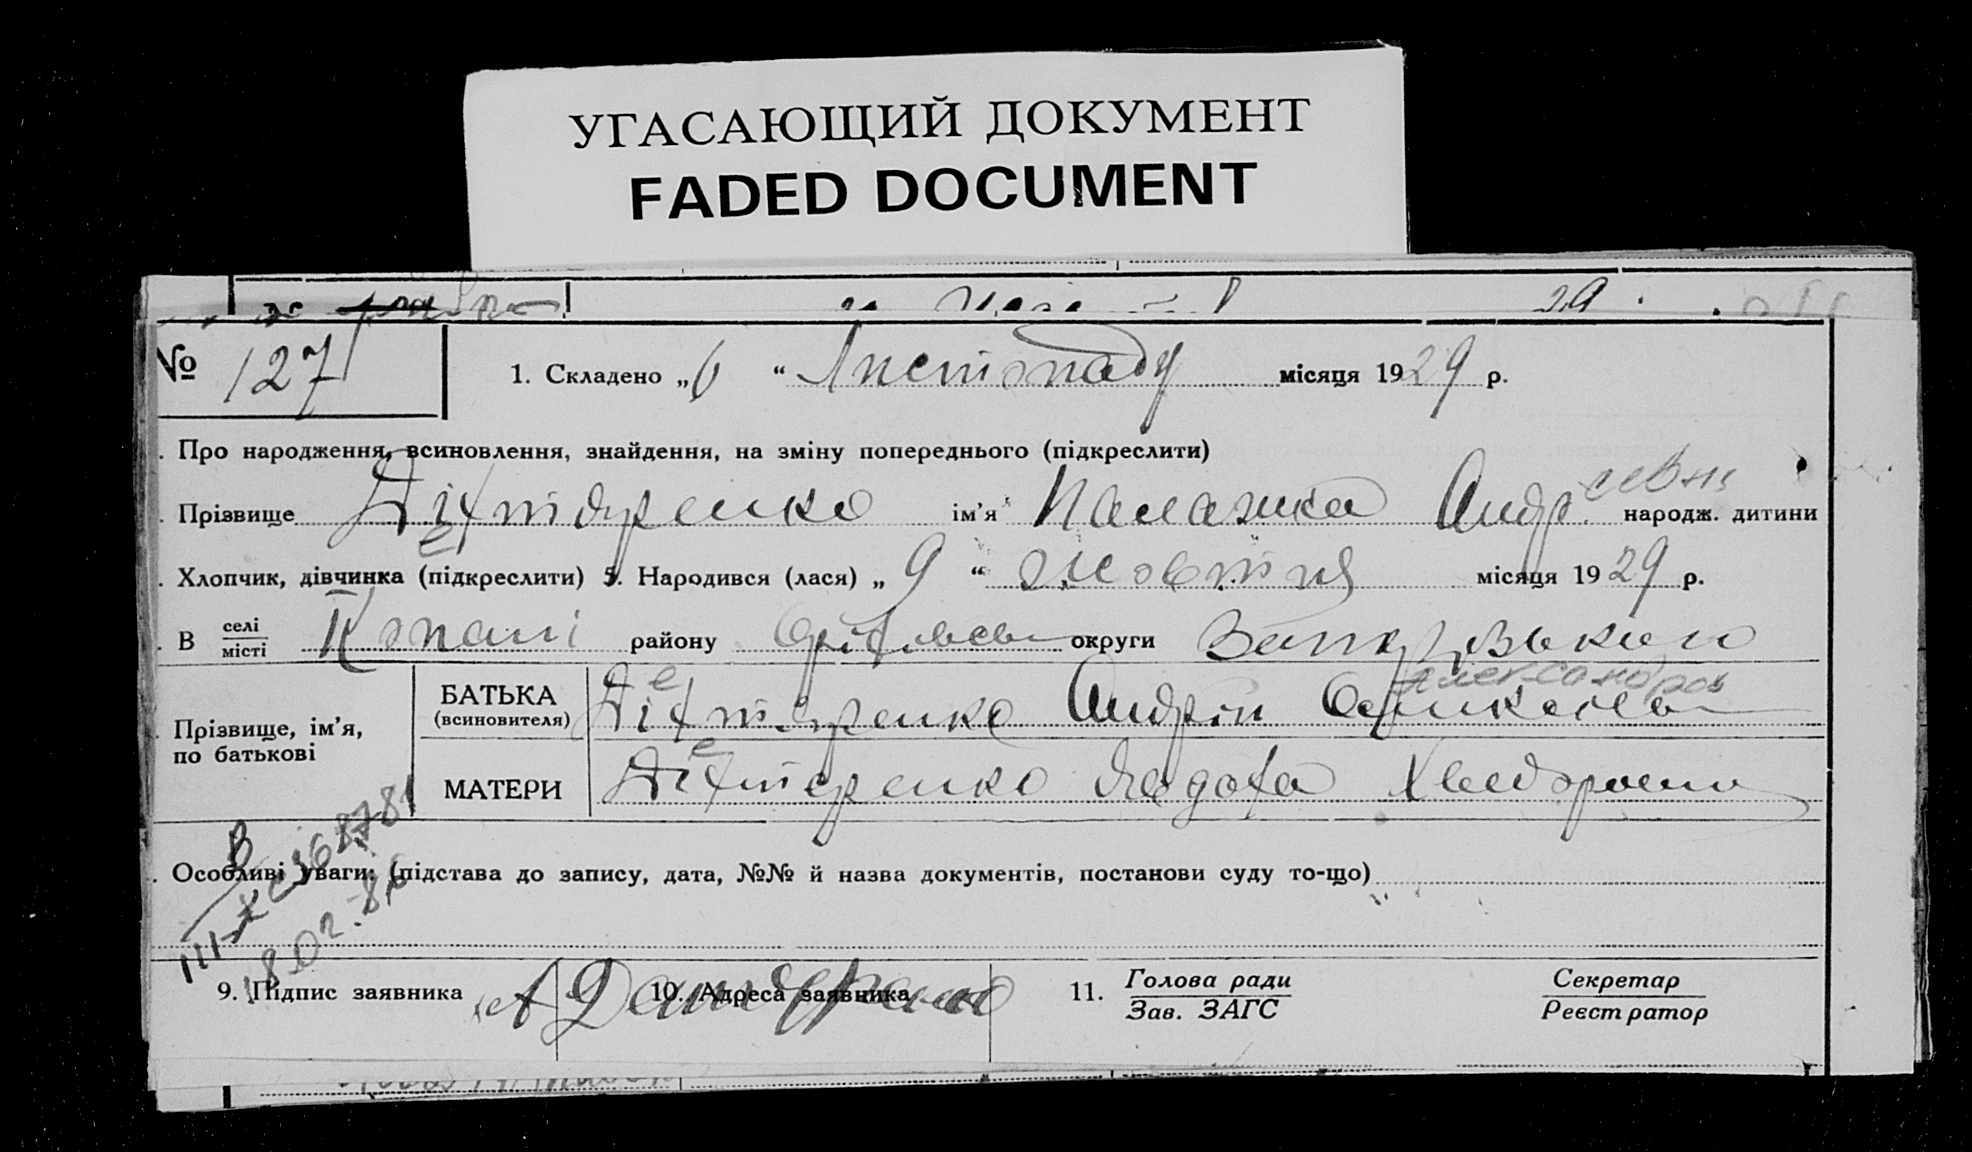 УГАСАЮЩИЙ ДОКУМЕНТ
FADED DOCUMENT
29
№ 127
1. Складено „6“ Листопаду місяця 1929 р.
Про народження, всиновлення, знайдення, на зміну попереднього (підкреслити)
Прізвище Діхтяренко ім’я Палажка Андр.еевна народж. дитини
е
Хлопчик, дівчинка (підкреслити) 5. Народився (лася) „9“ жовтня місяця 1929 р.
В селі місті Копані району Оріхівськ округи Запорізького
Прізвище, ім’я, по батькові
БАТЬКА (всиновителя) Діхтяренко Андрій
е Александров
МАТЕРИ Діхтяренко Явдоха Хведоровна
е
Особливі уваги: (підстава до запису, дата, №№ й назва документів, постанови суду то-що)
18.02.86
9. Підпис заявника
10. Адреса заявника
11. Голова ради
Зав. ЗАГС
Секретар
Реєстратор